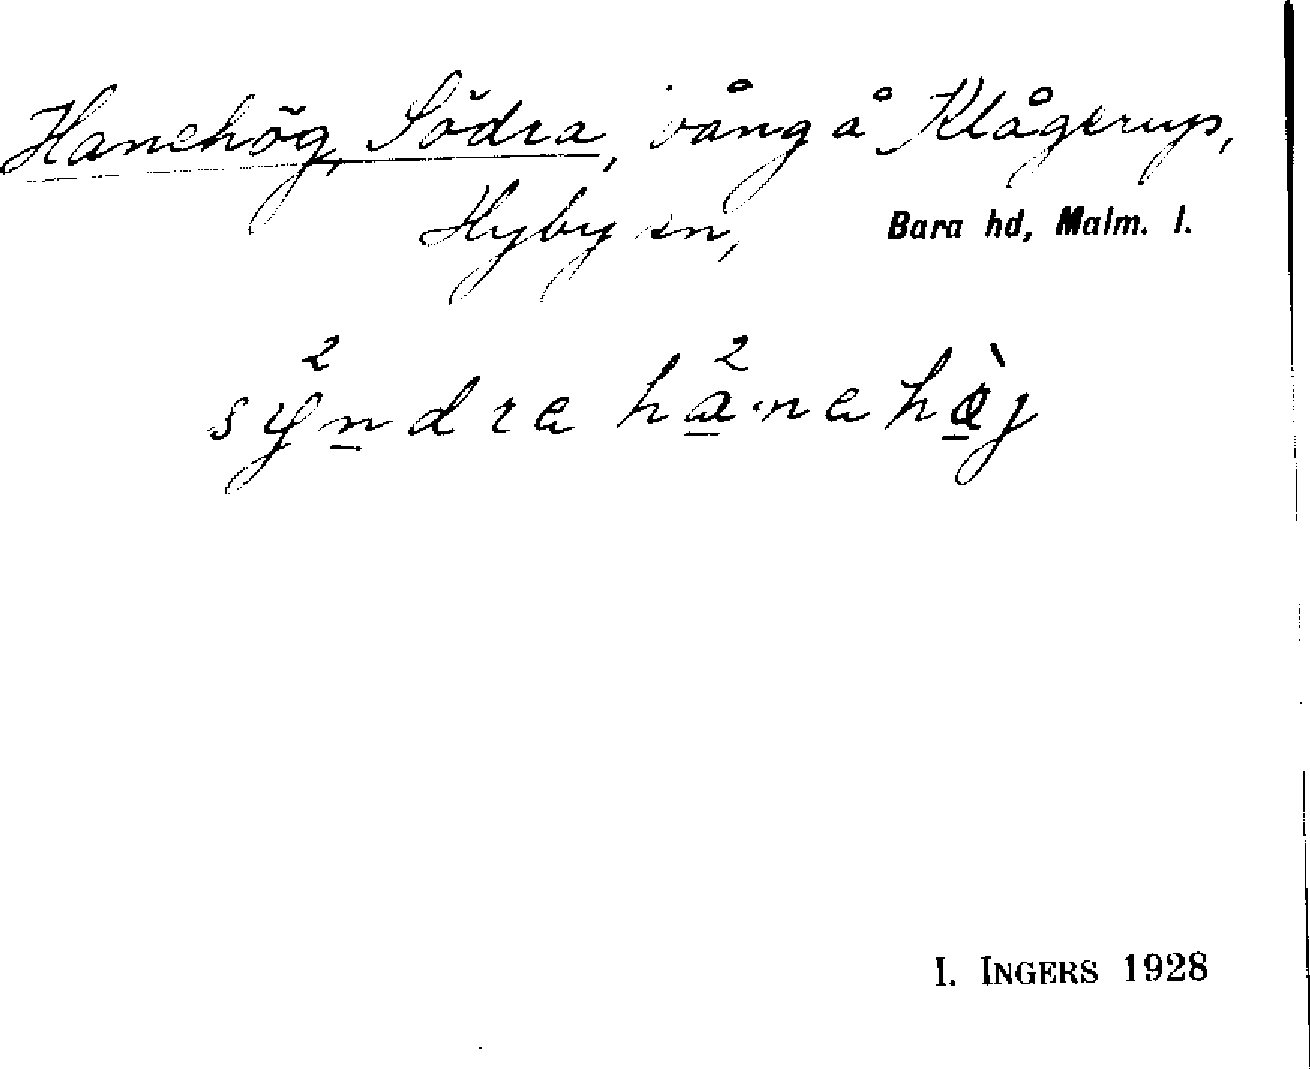 Hanehög, Södra, vång å Klågerups,
Hyby sn, Bara hd, Malm. l.
sy²ndra ha²·nahø̀j
I. INGERS 1928